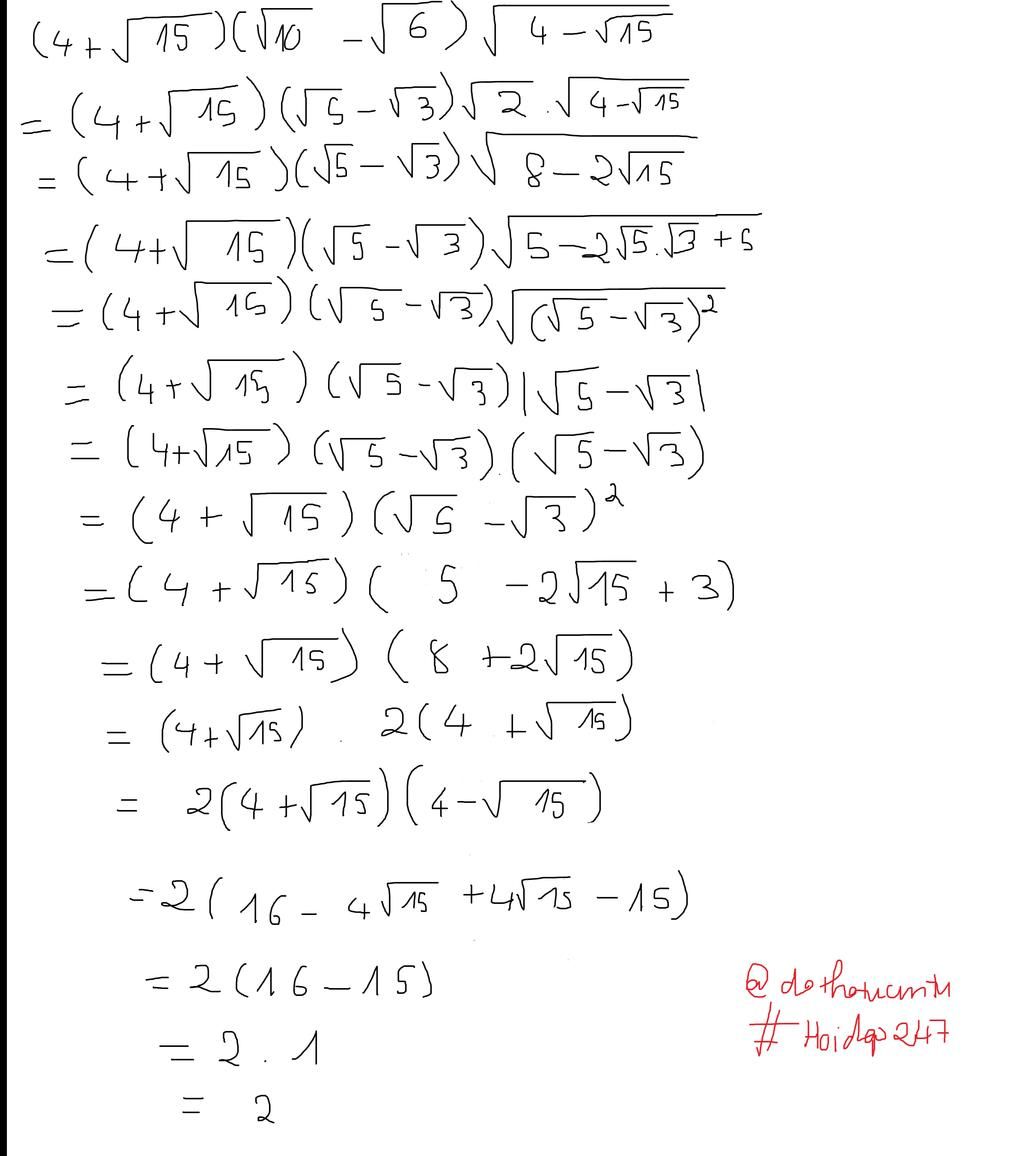 (4+√15)(√10 -√6)√(4-√15)
= (4+√15)(√5-√3)√2.√(4-√15)
= (4+√15)(√5-√3)√(8-2√15)
=(4+√15)(√5-√3)√(5-2√5.√3+5)
= (4+√15)(√5-√3)√((√5-√3)²)
= (4+√15)(√5-√3)|√5-√3|
= (4+√15)(√5-√3).(√5-√3)
= (4+√15)(√5-√3)²
=(4+√15)(5 -2√15+3)
=(4+√15)(8+2√15)
= (4+√15) . 2(4+√15)
= 2(4+√15)(4-√15)
=2(16-4√15+4√15-15)
= 2(16-15)
= 2.1
= 2
#Hoidap247